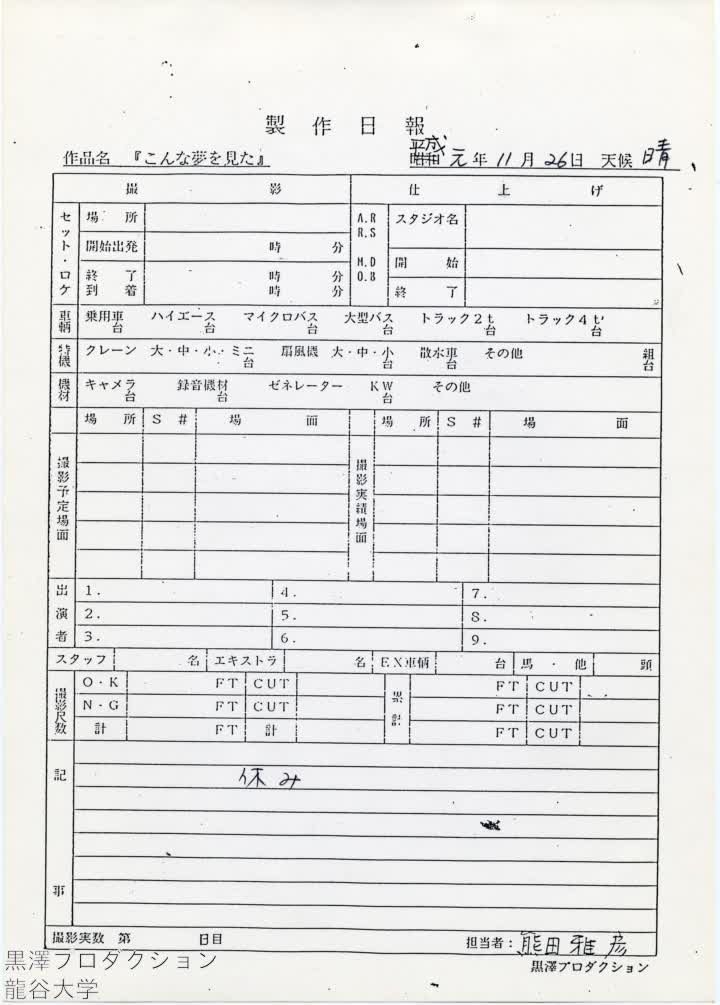 製作日報
作品名 『こんな夢を見た』 平成 昭和 元年 11月 26日 天候 晴
撮影 仕上げ
セット・ロケ 場所 A.R R.S スタジオ名
開始出発 時 分 M.D O.B 開始
終了 時 分 終了
到着 時 分
車輌 乗用車 台 ハイエース 台 マイクロバス 台 大型バス 台 トラック2t 台 トラック4t 台
特機 クレーン 大・中・小・ミニ 台 扇風機 大・中・小 台 散水車 台 その他 組 台
機材 キャメラ 台 録音機材 台 ゼネレーター KW 台 その他
場所 S# 場面 場所 S# 場面
撮影予定場面 撮影実績場面
出演者 1. 4. 7.
2. 5. 8.
3. 6. 9.
スタッフ 名 エキストラ 名 EX車輌 台 馬・他 頭
撮影尺数 O・K FT CUT 累計 FT CUT
N・G FT CUT FT CUT
計 FT 計 FT CUT
記事
休み
撮影実数 第 日目 担当者: 熊田雅彦
黒澤プロダクション
黒澤プロダクション
龍谷大学